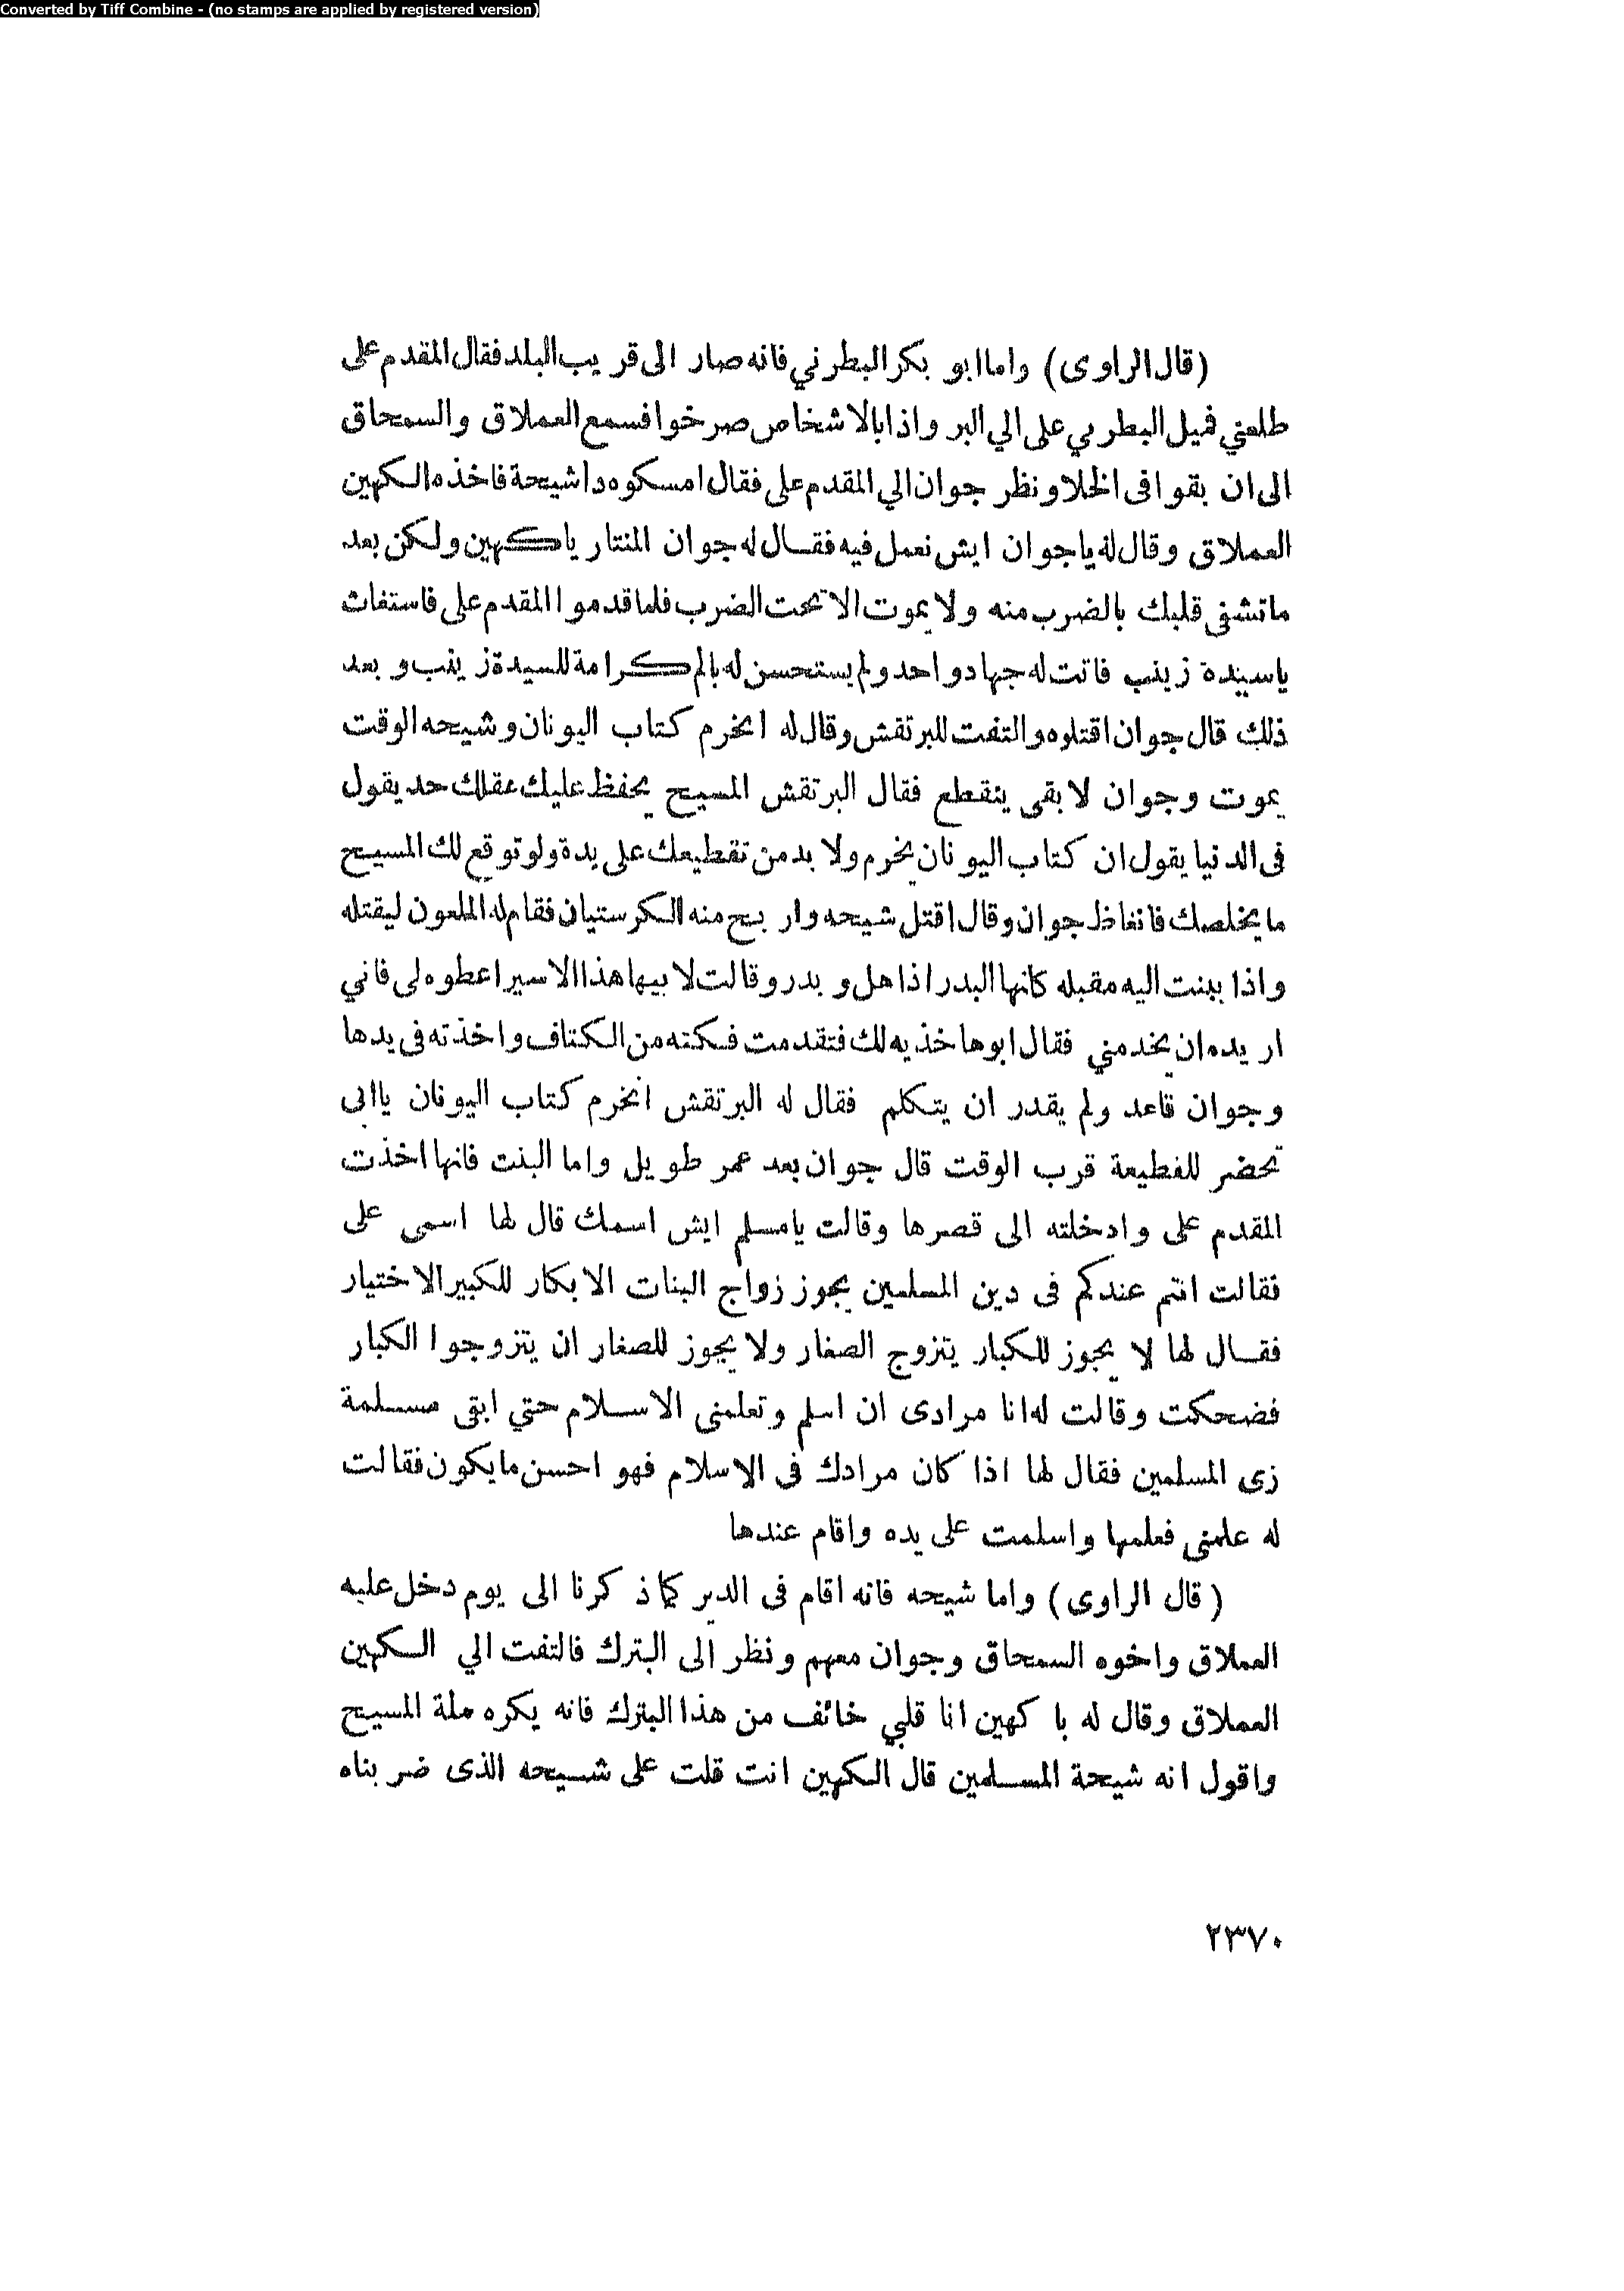 Converted by Tiff Combine - (no stamps are applied by registered version)
(قال الراوى) واما ابو بكر البطرني فانه صار الى قريب البلد فقال المقدم على
طلعني فميل البطرني على الي البر واذا بالاشخاص صرخوا فسمع العملاق والسمحاق
الى ان بقوا فى الخلا ونظر جوان الي المقدم على فقال امسكوه دا شيحة فاخذه الكهين
العملاق وقال له ياجوان ايش نعمل فيه فقال له جوان المنتار ياكهين ولكن بعد
ماتشفى قلبك بالضرب منه ولا يموت الا تحت الضرب فلما قدموا المقدم على فاستغاث
ياسيدة زينب فاتت له جهاد واحد ولم يستحسن له بالم كرامة للسيدة زينب وبعد
ذلك قال جوان اقتلوه والتفت للبرتقش وقال له انخرم كتاب اليونان وشيحه الوقت
يموت وجوان لا بقى ينقطع فقال البرتقش المسيح يحفظ عليك عقلك حد يقول
فى الدنيا يقول ان كتاب اليونان يخرم ولا بد من تقطيعك على يدة ولو توقع لك المسيح
ما يخلصك فانغاظ جوان وقال اقتل شيحه واربح منه الكرستيان فقام له الملعون ليقتله
واذا ببنت اليه مقبله كانها البدر اذا هل وبدر وقالت لابيها هذا الاسير اعطوه لى فاني
اريده ان يخدمني فقال ابوها خذيه لك فتقدمت فكته من الكتاف واخذته فى يدها
وجوان قاعد ولم يقدر ان يتكلم فقال له البرتقش انخرم كتاب اليونان ياابى
تحضر للقطيعة قرب الوقت قال جوان بعد عمر طويل واما البنت فانها اخذت
المقدم على وادخلته الى قصرها وقالت يامسلم ايش اسمك قال لها اسمى على
فقالت انتم عندكم فى دين المسلمين يجوز زواج البنات الابكار للكبير الاختيار
فقال لها لا يجوز للكبار يتزوج الصغار ولا يجوز للصغار ان يتزوجوا الكبار
فضحكت وقالت له انا مرادى ان اسلم وتعلمنى الاسلام حتي ابقى مسلمة
زى المسلمين فقال لها اذا كان مرادك فى الاسلام فهو احسن مايكون فقالت
له علمنى فعلمها واسلمت على يده واقام عندها
(قال الراوى) واما شيحه فانه اقام فى الدير كما ذكرنا الى يوم دخل عليه
العملاق واخوه السمحاق وجوان معهم ونظر الى البترك فالتفت الي الكهين
العملاق وقال له با كهين انا قلبي خائف من هذا البترك فانه يكره ملة المسيح
واقول انه شيحة المسلمين قال الكهين انت قلت على شيحه الذى ضربناه
٢٣٧٠